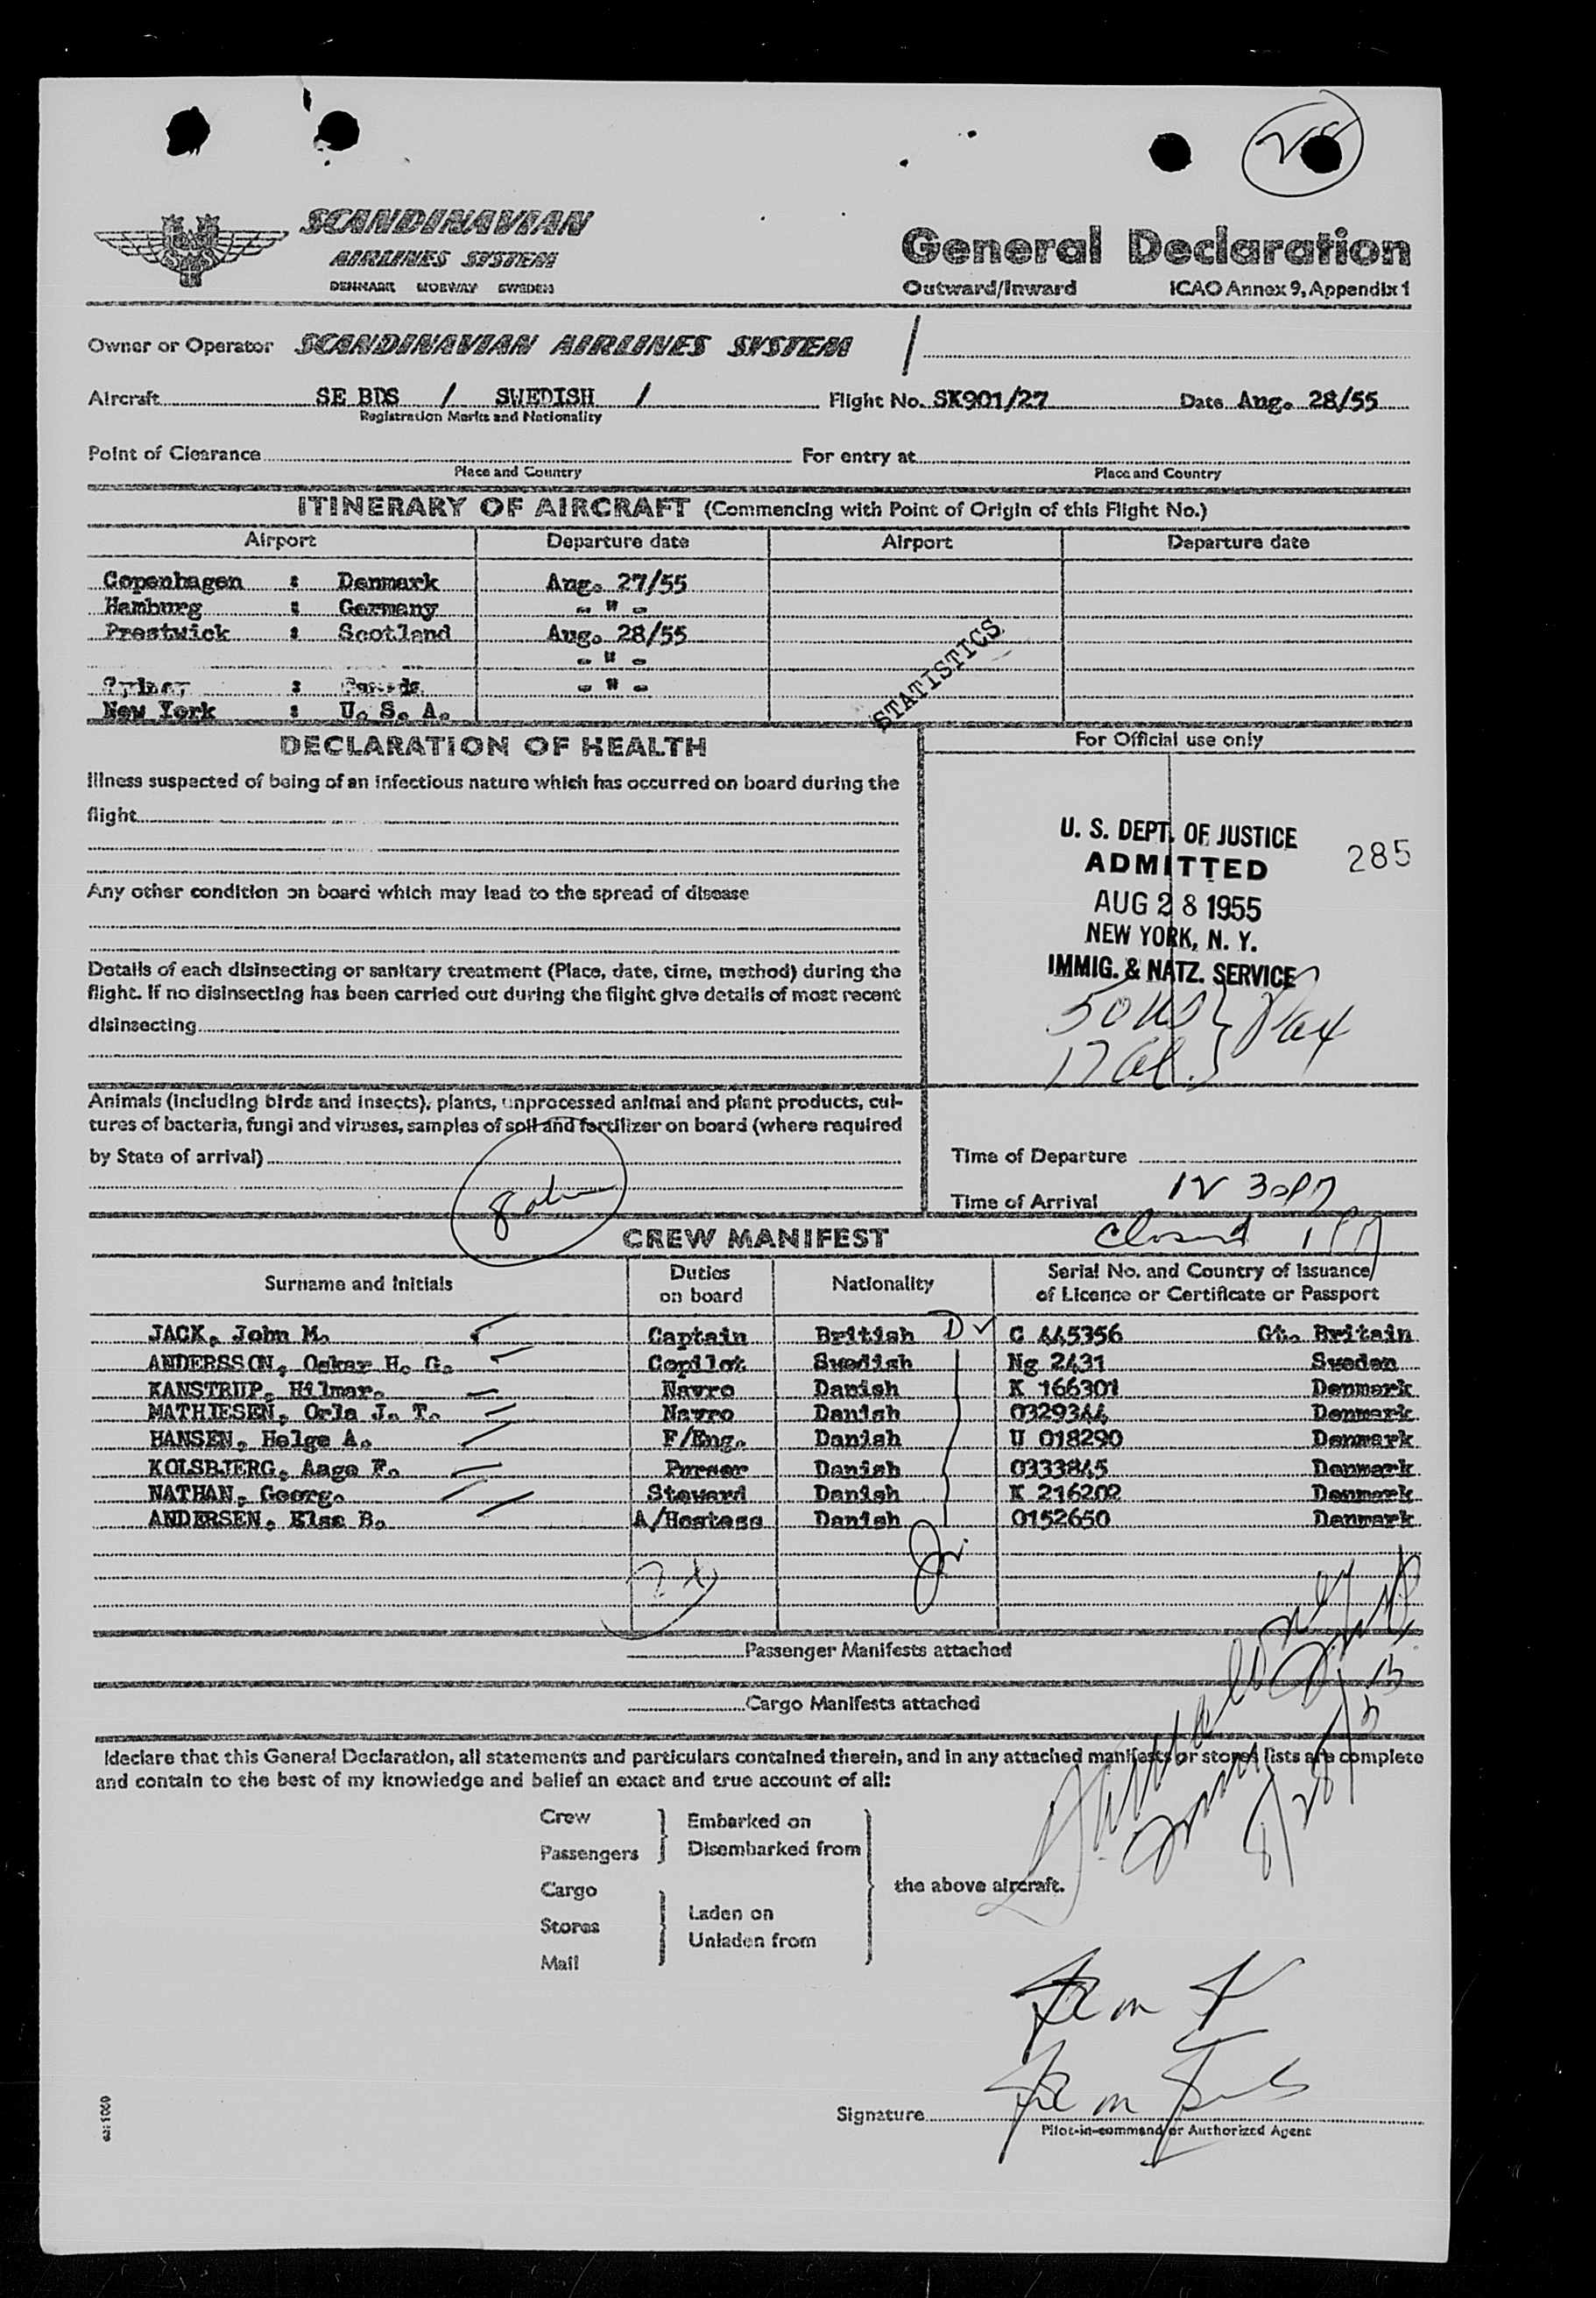 SCANDINAVIAN
AIRLINES SYSTEM
DENMARK NORWAY SWEDEN
General Declaration
Outward/Inward ICAO Annex 9, Appendix 1
Owner or Operator SCANDINAVIAN AIRLINES SYSTEM /
Aircraft SE BDS / SWEDISH / Flight No. SK901/27 Date Aug. 28/55
Registration Marks and Nationality
Point of Clearance For entry at
Place and Country Place and Country
ITINERARY OF AIRCRAFT (Commencing with Point of Origin of this Flight No.)
Airport Departure date Airport Departure date
Copenhagen : Denmark Aug. 27/55
Hamburg : Germany - " -
Prestwick : Scotland Aug. 28/55
- " -
: - " -
New York : U. S. A.
STATISTICS
DECLARATION OF HEALTH
For Official use only
Illness suspected of being of an infectious nature which has occurred on board during the
flight
Any other condition on board which may lead to the spread of disease
Details of each disinsecting or sanitary treatment (Place, date, time, method) during the
flight. If no disinsecting has been carried out during the flight give details of most recent
disinsecting
U. S. DEPT. OF JUSTICE
ADMITTED 285
AUG 28 1955
NEW YORK, N. Y.
IMMIG. & NATZ. SERVICE
50 US } Pax
17 al.
Animals (including birds and insects), plants, unprocessed animal and plant products, cul-
tures of bacteria, fungi and viruses, samples of soil and fertilizer on board (where required
by State of arrival)
Time of Departure
Time of Arrival 12 30 PM
closed 1 PM
CREW MANIFEST
Surname and Initials Duties on board Nationality Serial No. and Country of Issuance of Licence or Certificate or Passport
JACK, John M. Captain British D ✓ C 445356 Gt. Britain
ANDERSSON, Oskar H. G. Copilot Swedish Ng 2431 Sweden
KANSTRUP, Hilmar. Navro Danish K 166301 Denmark
MATHIESEN, Orla J. T. Navro Danish 0329344 Denmark
HANSEN, Helge A. F/Eng. Danish U 018290 Denmark
KOLSBJERG, Aage F. Purser Danish 0333845 Denmark
NATHAN, Georg. Steward Danish K 216202 Denmark
ANDERSEN, Else B. A/Hostess Danish 0152650 Denmark
Passenger Manifests attached
Cargo Manifests attached
I declare that this General Declaration, all statements and particulars contained therein, and in any attached manifests or stores lists are complete
and contain to the best of my knowledge and belief an exact and true account of all:
Crew
Passengers
Embarked on
Disembarked from
Cargo
Stores
Mail
Laden on
Unladen from
the above aircraft.
8/28/55
Signature
Pilot-in-command or Authorized Agent